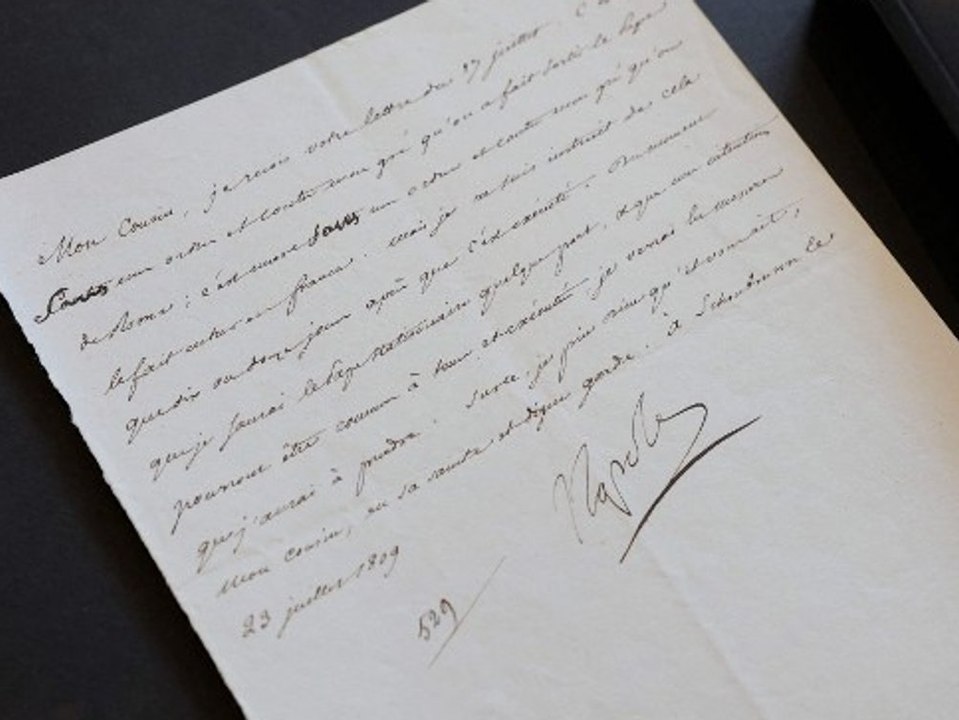 Mon Cousin, je reçois votre lettre du 17 juillet.
Sans mon ordre et contre mon gré qu'on a fait sortir le Pape
de Rome ; c'est encore sans mon ordre et contre mon gré qu'on
le fait entrer en france. mais je ne suis instruit de cela
que dix ou douze jours après que c'est exécuté. Du moment
que je saurai le Pape stationnaire quelque part, et que mes intentions
pourront être connues à tems et exécutées, je verrai les mesures
que j'aurai à prendre. Sur ce, je prie Dieu qu'il vous ait,
Mon Cousin, en sa sainte et digne garde. à Schonbrunn le
23 juillet 1809
Napole
529